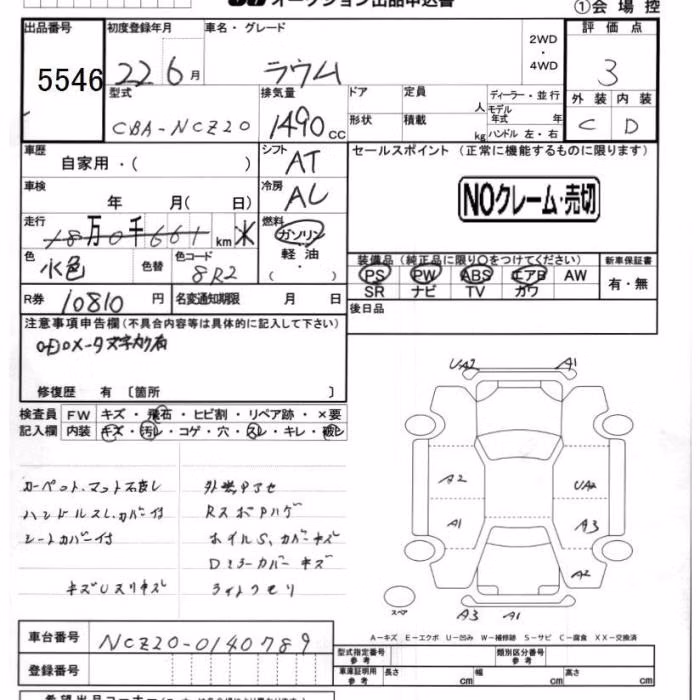 オークション出品申込書
①会場控
出品番号
5546
初度登録年月
22 6月
車名・グレード
ラウム
2WD
・
4WD
評価点
3
型式
CBA-NCZ20
排気量
1490cc
ドア
定員
人
形状
積載
kg
ディーラー・並行
モデル
年式 年
ハンドル 左・右
外装 内装
C D
車歴
自家用・( )
シフト
AT
セールスポイント (正常に機能するものに限ります)
NOクレーム・売切
車検
年 月( 日)
冷房
AC
走行
18万0千661km ※
燃料
ガソリン
軽油
・
( )
色
水色
色替
色コード
8R2
装備品(純正品に限り○をつけてください)
PS PW ABS エアB AW
SR ナビ TV カワ
新車保証書
有・無
R券 10810円
名変通知期限 月 日
後日品
注意事項申告欄(不具合内容等は具体的に記入して下さい)
修復歴 有 〔箇所 〕
検査員 FW キズ・飛石・ヒビ割・リペア跡・×要
記入欄 内装 キズ・汚レ・コゲ・穴・スレ・キレ・破レ
カーペット、マット不良し
ハンドルスレ、カバー付
シートカバー付
ホイルS、カバーキズ
Dミラーカバーキズ
UA2
A1
A2
A1
A3
A2
スペア
A3
A1
A-キズ E-エクボ U-凹み W-補修跡 S-サビ C-腐食 XX-交換済
車台番号 NCZ20-0140789
登録番号
型式指定番号
参考
類別区分番号
参考
車庫証明用
参考
長さ cm 幅 cm 高さ cm